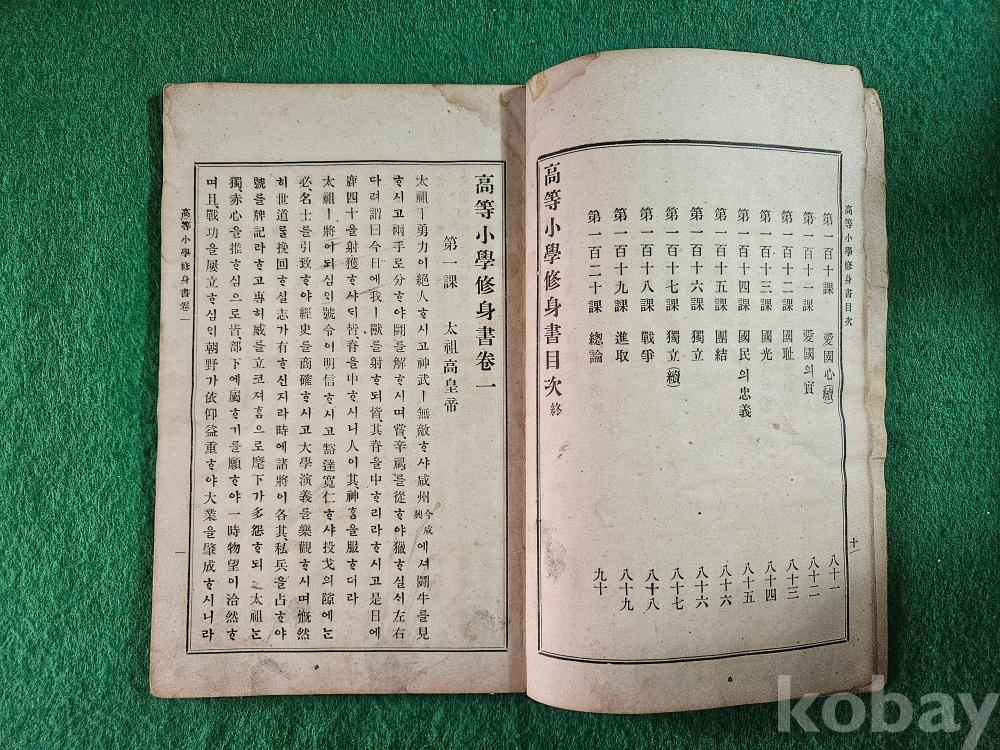 高等小學修身書目次
第一百十課 愛國心(續) 八十一
第一百十一課 愛國의實 八十二
第一百十二課 國耻 八十三
第一百十三課 國光 八十四
第一百十四課 國民의忠義 八十五
第一百十五課 團結 八十六
第一百十六課 獨立 八十六
第一百十七課 獨立(續) 八十七
第一百十八課 戰爭 八十八
第一百十九課 進取 八十九
第一百二十課 總論 九十
高等小學修身書目次 終
十一
高等小學修身書卷一
第一課 太祖高皇帝
太祖ㅣ勇力이絶人ᄒᆞ시고神武ㅣ無敵ᄒᆞ샤咸州今咸興에셔鬪牛를見
ᄒᆞ시고兩手로分ᄒᆞ야鬪를解ᄒᆞ시며嘗、辛禑를從ᄒᆞ야獵ᄒᆞ실ᄉᆡ左右
다려謂曰今日에我ㅣ獸를射ᄒᆞ되皆、其脊을中ᄒᆞ리라ᄒᆞ시고是日에
鹿四十을射獲ᄒᆞ샤ᄃᆡ皆、脊을中ᄒᆞ시니人이其、神홈을服ᄒᆞ더라
太祖ㅣ將이되심ᄋᆡ號令이明信ᄒᆞ시고豁達寬仁ᄒᆞ샤投戈의隙에ᄂᆞᆫ
必、名士를引致ᄒᆞ야經史를商確ᄒᆞ시고大學演義를樂觀ᄒᆞ시며慨然
히世道를挽回ᄒᆞ실志가有ᄒᆞ신지라時에諸將이各其、私兵을占ᄒᆞ야
號를牌記라ᄒᆞ고專혀威를立코져홈으로麾下가多怨ᄒᆞ되太祖ᄂᆞᆫ
獨、赤心을推ᄒᆞ심으로皆部下에屬ᄒᆞ기를願ᄒᆞ야一時物望이洽然ᄒᆞ
며且、戰功을屢立ᄒᆞ심ᄋᆡ朝野가依仰益重ᄒᆞ야大業을肇成ᄒᆞ시니라
高等小學修身書卷一
一
kobay